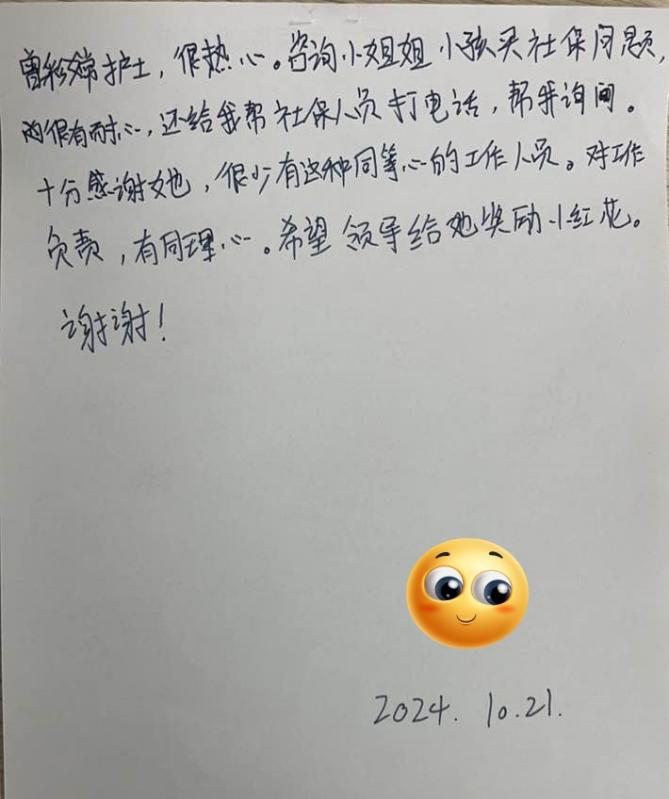 曾彩嫦护士，很热心。咨询小姐姐小孩买社保问题，
她很有耐心，还给我帮社保人员打电话，帮我询问。
十分感谢她，很少有这种同等心的工作人员。对工作
负责，有同理心。希望领导给她奖励小红花。
谢谢！
2024.10.21.